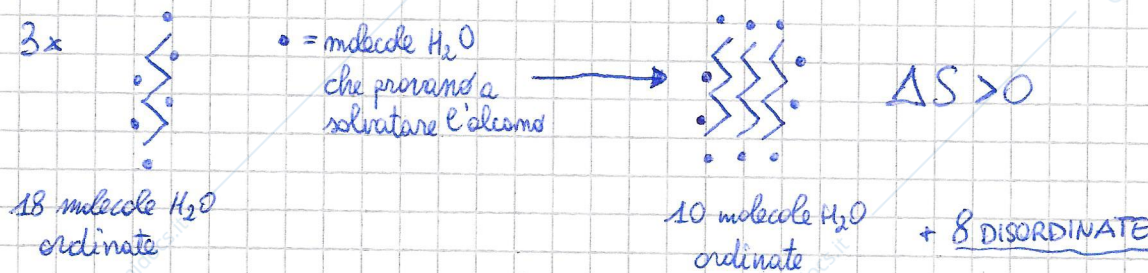 3x
• = molecole H₂O
che provano a
solvatare l'alcano
ΔS>0
18 molecole H₂O
ordinate
10 molecole H₂O
ordinate
+ 8 DISORDINATE